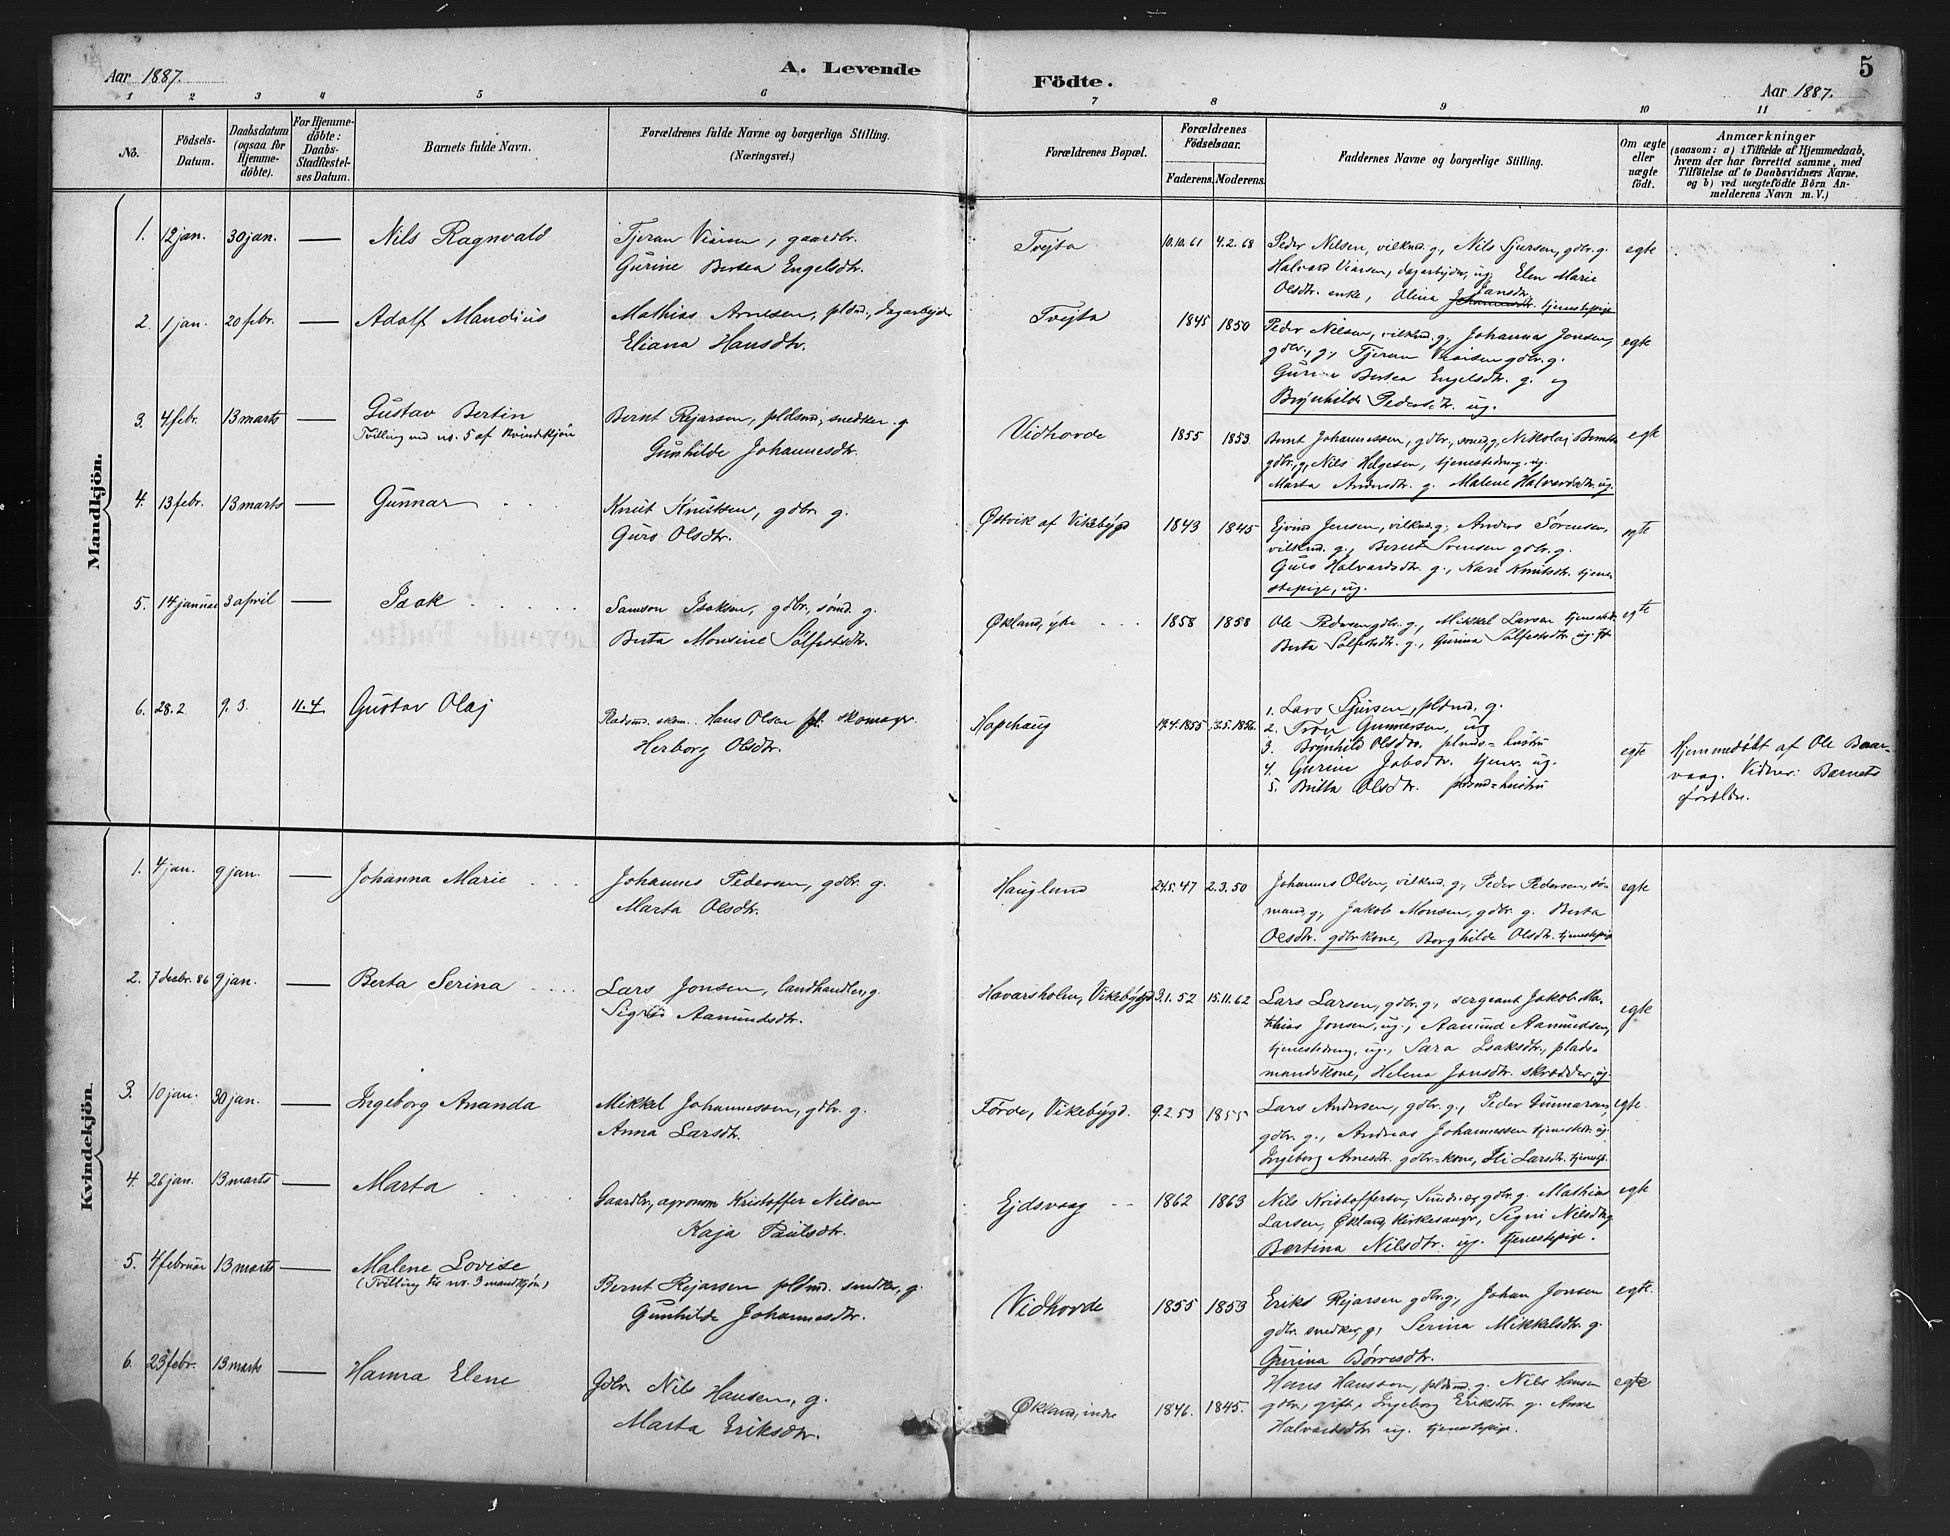 Aar 1887.
A. Levende
Födte.
5
Aar 1887.
1 2 3 4 5 6 7 8 9 10 11
No.
Födsels-
Datum.
Daabsdatum
(ogsaa for
Hjemme-
döbte).
For Hjemme-
döbte:
Daabs-
Stadfæstel-
ses Datum.
Barnets fulde Navn.
Forældrenes fulde Navne og borgerlige Stilling.
(Næringsvei.)
Forældrenes Bopæl.
Forældrenes
Födselsaar.
Faderens. Moderens.
Faddernes Navne og borgerlige Stilling.
Om ægte
eller
uægte
födt.
Anmærkninger
(saasom: a) i Tilfælde af Hjemmedaab,
hvem der har forrettet samme, med
Tilföielse af to Daabsvidners Navne.
og b) ved uægtefödte Börn An-
melderens Navn m. V.)
Mandkjön.
1. 12 jan. 30 jan. — Nils Ragnvald
Tjeran Viarsen, gaardbr.
Gurine Bertea Engelsdtr.
Tvejta
10.10.61 4.2.68
Peder Nilsen, vilkmd. g., Nils Sjursen, gdbr. g.
Halvard Viarsen, dagarbejder, ug. Elen Marie
Olsdtr. enke, Olina Jansdtr. tjenestepige
egte
2. 1 jan. 20 febr. — Adolf Mandius
Mathias Arnesen, plsmd., dagarbejder
Eliana Hansdtr.
Tvejta
1845 1850
Peder Nilsen, vilkmd. g., Johannes Jonsen,
gdbr., g., Tjeran Viarsen gdbr. g.
Gurine Bertea Engelsdtr. g. og
Brynhilde Pedersdtr. ug.
egte
3. 4 febr. 13 marts — Gustav Bertin
Tvilling med no. 5 af Kvindekjön
Bernt Rejarsen, pldsmd., snedker. g.
Gunhilde Johannesdtr.
Vidhovde
1855 1853
Bernt Johannessen, gdbr., smed, g, Nikolaj Berntsen
gdbr., g, Nils Helgesen, tjenestedreng. ug.
Marta Andersdtr. g. Malene Halvardsdtr. ug.
egte
4. 13 febr. 13 marts — Gunnar
Knut Knutsen, gdbr. g.
Guro Olsdtr.
Østvik af Vikebygd
1843 1845
Ejvind Jensen, vilkmd. g., Anders Sørensen,
vilkmd. g., Bernt Svensen gdbr. g.
Guro Halvardsdtr. g., Kari Knutsdtr. tjene-
stepige, ug.
egte
5. 14 januar 3 april — Isak
Samson Isaksen, gdbr., sømd. g.
Berta Monsine Sølfestsdtr.
Økland, ytre
1858 1858
Ole Pedersen gdbr. g., Mikkel Larsen tjenestedr.
Berta Sølfestsdtr. g., Gurina Sølfestsdtr. ug.
egte
6. 28.2 9.3. 11.4 Gustav Olaj
Pladsmd. skom. Hans Olsen skomagr.
Herborg Olsdtr.
Hopehaug
17.4.1855 3.5.1856.
1. Lars Sjursen, pldsmd. g.
2. Tron Gunnarsen, ug
3. Brynhild Olsdtr. pldmds=hustru
4. Gurine Jobsdtr. tjener. ug.
5. Britta Olsdtr. pldsmd=hustru
egte
Hjemmedøbt af Ole Baar-
vaag. Vidner: Barnets
foreldre.
Kvindekjön.
1. 4 jan. 9 jan. — Johanna Marie
Johannes Pedersen, gdbr. g.
Marta Olsdtr.
Haugland
24.5.47 2.3.50
Johannes Olsen, vilkmd. g., Peder Pedersen, sø-
mand, g, Jakob Monsen, gdbr. g. Berta
Olsdtr. gdbrkone, Borghilde Olsdtr. tjenestepige
egte
2. 7 decbr. 86 9 jan. — Berta Serina
Lars Jonsen, landhandler, g.
Sigrid Aamundsdtr.
Havarsholm, Vikebygd
9.1.52 15.11.62
Lars Larsen, gdbr. g., sergeant Jakob Ma-
thias Jonsen, ug., Aamund Aamundsen,
tjenestedreng, ug., Sara Isaksdtr., plads-
mandskone, Helena Jonsdtr. skrædder, ug.
egte
3. 10 jan. 30 jan. — Ingeborg Ananda
Mikkel Johannessen, gdbr. g.
Anna Larsdtr.
Førde, Vikebygd.
9.2.53 1855
Lars Andersen, gdbr. g., Peder Gunnarsen,
gdbr. g., Andreas Johannessen tjenestedr. ug.
Ingeborg Arnesdtr. gdbr=kone, Eli Larsdtr. tjenestep.
egte.
4. 26 jan. 13 marts — Marta
Gaardbr., agronom Kristoffer Nilsen
Kaja Paulsdtr.
Ejdsvaag
1862 1863
Nils Kristoffersen, Smedr. og gdbr. g. Mathias
Larsen, Økland, kirkesangr, Signi Nilsdtr.
Bertina Nilsdtr. ug. tjenestepige.
egte
5. 4 februar 13 marts — Malene Lovise
(Tvilling til no. 3 mandkjøn)
Bernt Rejarsen pldsmd. snedker, g.
Gunhilde Johannesdtr.
Vidhovde
1855 1853
Eriks Rejarsen gdbr. g., Johan Jonsen
gdbr. snedker, g, Serina Mikkelsdtr. g.
Gurina Børresdtr.
egte.
6. 23 febr. 13 marts — Hanna Elene
Gdbr. Nils Hansen, g.
Marta Eriksdtr.
Økland, indre
1846. 1845.
Hans Hansson, pldsmd. g. Nils Hansen
gdbr, gift, Ingeborg Eriksdtr. g. Anna
Halvardsdtr ug. tjenestepige.
egte